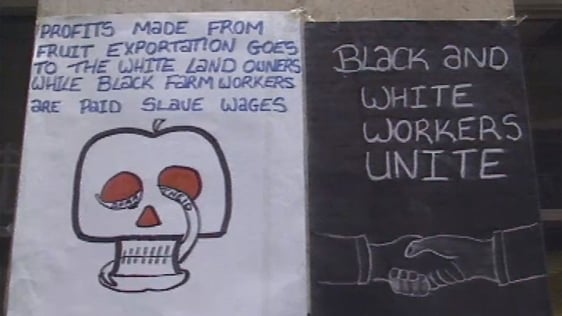 PROFITS MADE FROM
FRUIT EXPORTATION GOES
TO THE WHITE LAND OWNERS
WHILE BLACK FARM WORKERS
ARE PAID SLAVE WAGES
BLACK AND
WHITE
WORKERS
UNITE